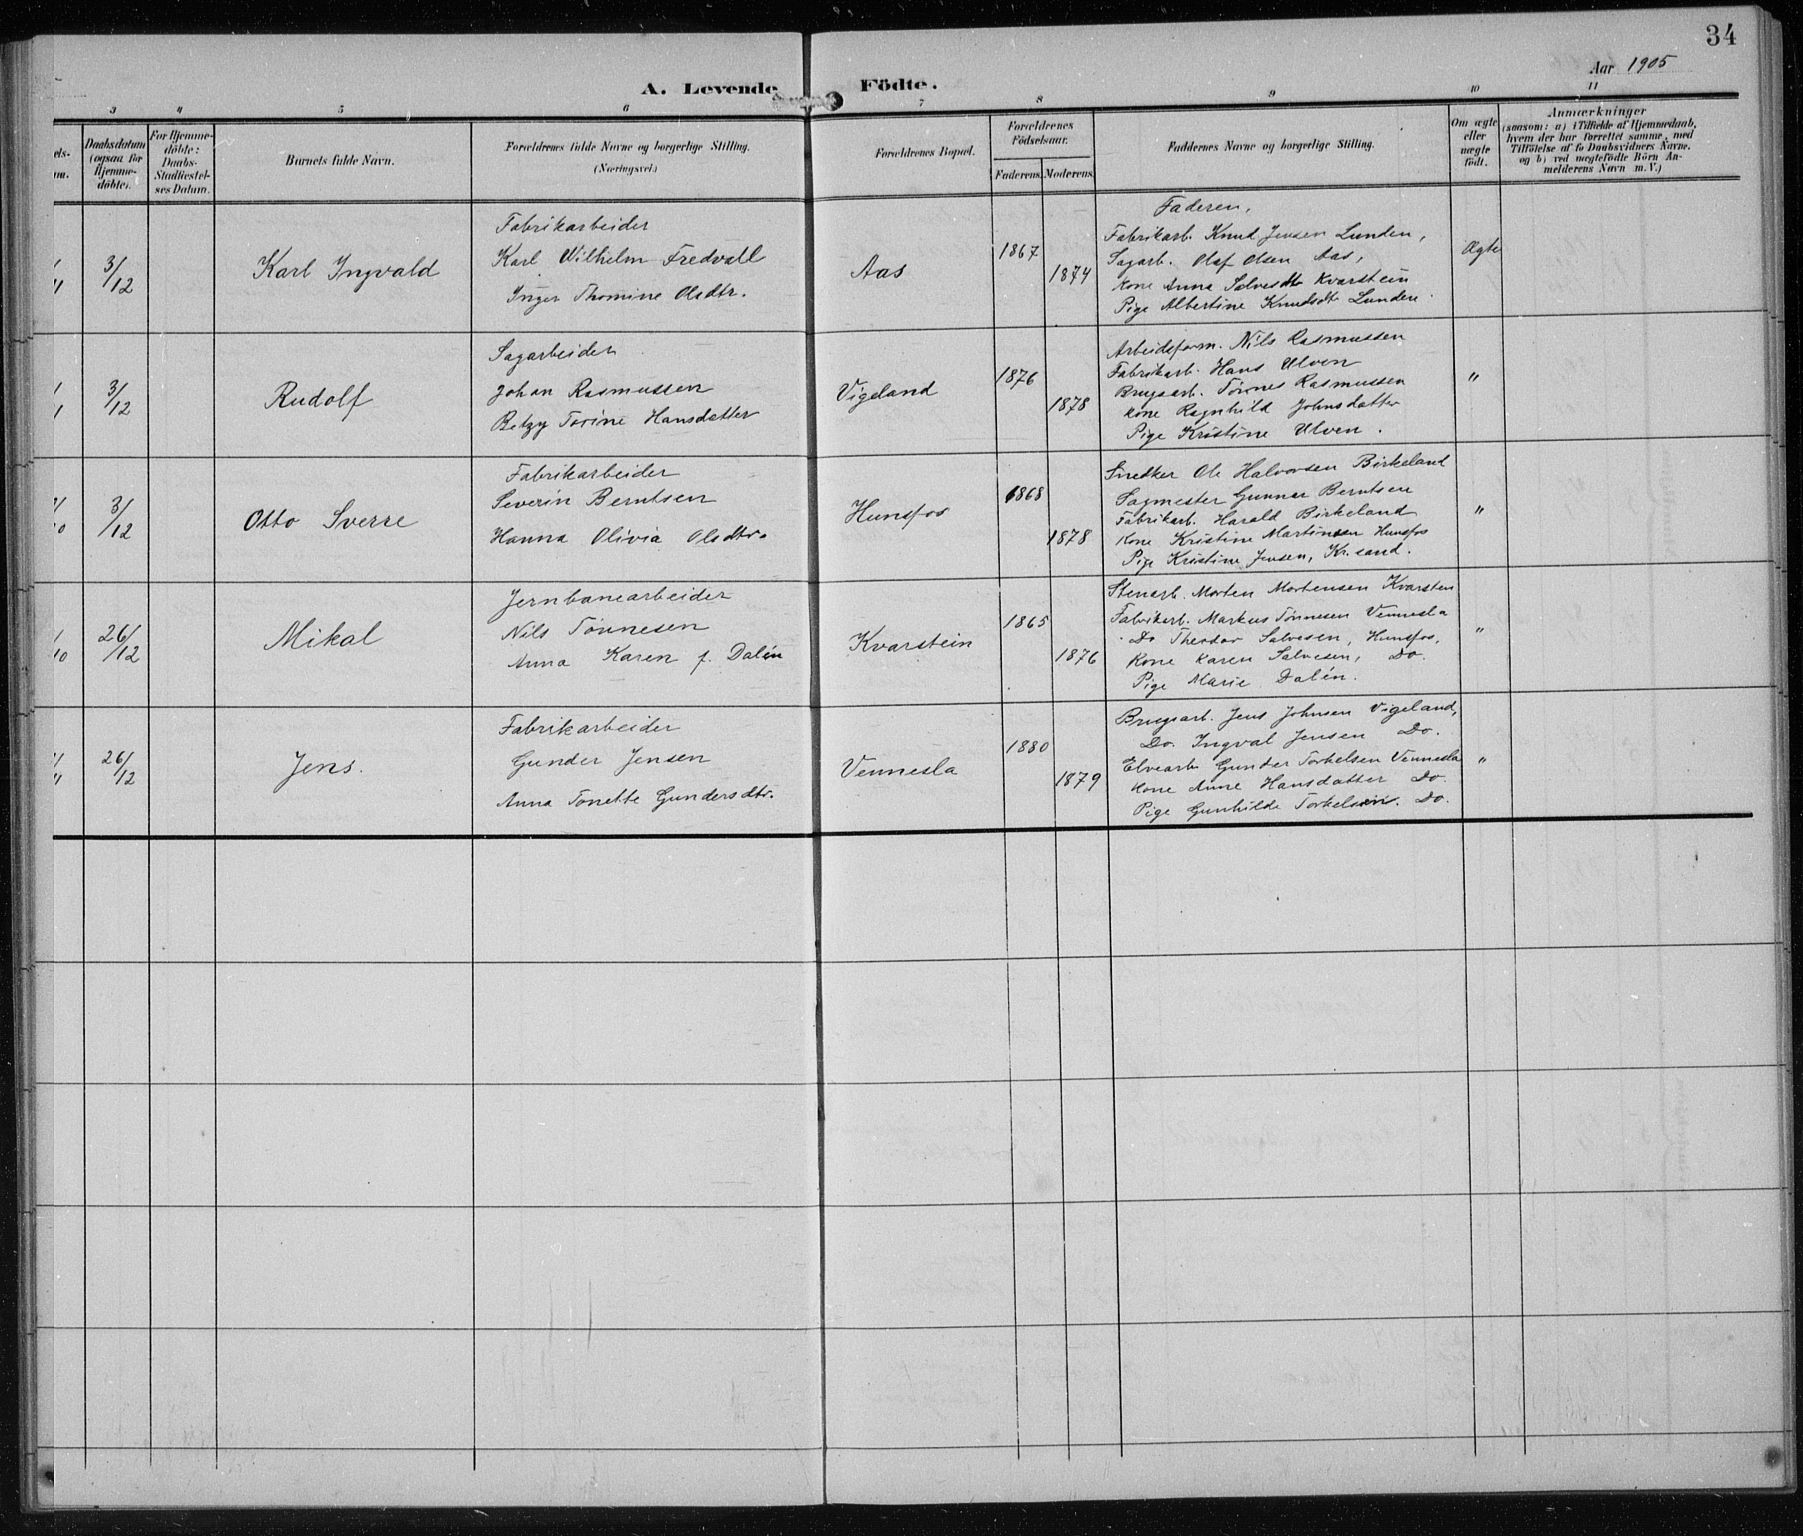 34
Aar 1905
A. Levende Födte.
3 4 5 6 7 8 9 10 11
Daabsdatum (ogsaa for Hjemme-döbte).
For Hjemme-döbte: Daabs-Stadfæstel-ses Datum.
Barnets fulde Navn.
Forældrenes fulde Navne og borgerlige Stilling.
(Næringsvei.)
Forældrenes Bopæl.
Forældrenes Födselsaar.
Faderens. Moderens.
Faddernes Navne og borgerlige Stilling.
Om ægte eller uægte födt.
Anmærkninger
(saasom: a) i Tilfælde af Hjemmedaab,
hvem der har forrettet samme, med
Tilföielse af to Daabsvidners Navne,
og b) ved uægtefödte Börn An-
melderens Navn m. V.)
3/12
Karl Ingvald
Fabrikarbeider
Karl Wilhelm Fredvall
Inger Thomine Olsdtr.
Aas
1867
1874
Faderen,
Fabrikarb. Knud Jensen Lunden,
Sagarb. Olaf Olsen Aas,
Kone Anna Salvesdtr Kvarstein
Pige Albertine Knudsdtr Lunden.
Ægte
3/12
Rudolf
Sagarbeider
Johan Rasmussen
Betzy Torine Hansdatter
Vigeland
1876
1878
Arbeidsform. Nils Rasmussen
Fabrikarb. Hans Ulven
Brugsarb. Tönnes Rasmussen
Kone Ragnhild Johnsdatter
Pige Kristine Ulven.
"
3/12
Otto Sverre
Fabrikarbeider
Severin Berntsen
Hanna Olivia Olsdtr.
Hunsfos
1868
1878
Snedker Ole Halvorsen Birkeland
Sagmester Gunnar Berntsen
Fabrikarb. Harald Birkeland
Kone Kristine Martinsen Hunsfos
Pige Kristine Jensen, Kr.sand.
"
26/12
Mikal
Jernbanearbeider
Nils Tönnesen
Anna Karen f. Dalén
Kvarstein
1865
1876
Stenarb. Morten Mortensen Kvarsten
Fabrikarb. Markus Tönnesen Vennesla
Do Theodor Salvesen, Hunsfos,
Kone Karen Salvesen, Do.
Pige Marie Dalén.
"
26/12
Jens.
Fabrikarbeider
Gunder Jensen
Anna Tonette Gundersdtr.
Vennesla
1880
1879
Brugsarb. Jens Johnsen Vigeland,
Do. Ingval Jensen Do.
Elvearb Gunder Torkelsen Vennesla
Kone Anne Hansdatter Do.
Pige Gunhilde Torkelsen. Do.
"